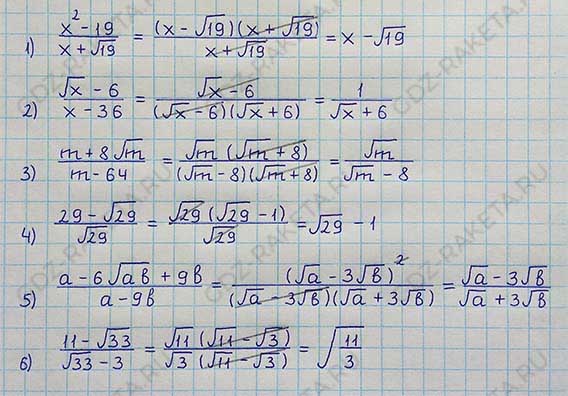 1) (x² - 19)/(x + √19) = ((x - √19)(x + √19))/(x + √19) = x - √19
2) (√x - 6)/(x - 36) = (√x - 6)/((√x - 6)(√x + 6)) = 1/(√x + 6)
3) (m + 8√m)/(m - 64) = (√m (√m + 8))/((√m - 8)(√m + 8)) = √m/(√m - 8)
4) (29 - √29)/√29 = (√29 (√29 - 1))/√29 = √29 - 1
5) (a - 6√ab + 9b)/(a - 9b) = (√a - 3√b)²/((√a - 3√b)(√a + 3√b)) = (√a - 3√b)/(√a + 3√b)
6) (11 - √33)/(√33 - 3) = (√11 (√11 - √3))/(√3 (√11 - √3)) = √(11/3)
GDZ-RAKETA.RU